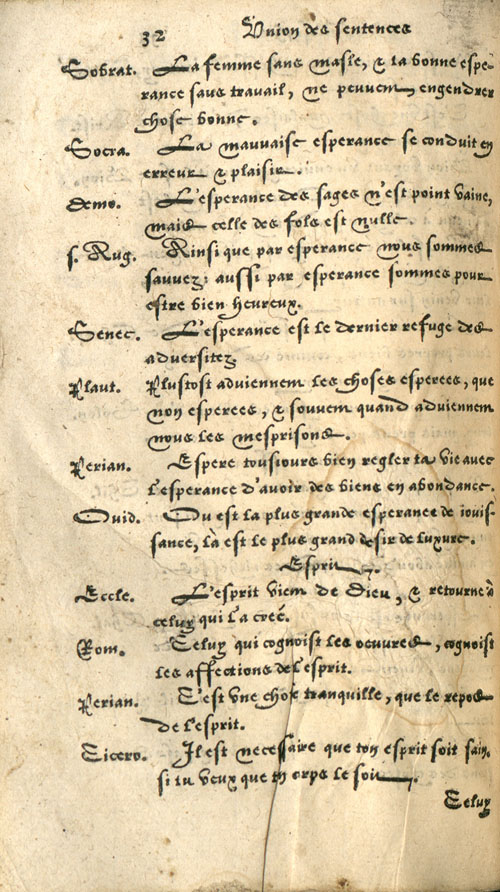 32 Vnion des sentences
Socrat. La femme sans masle, & la bonne espe-
rance sans travail, ne peuvent engendrer
chose bonne.
Socra. La mauvaise esperance se conduit en
erreur & plaisir.
Demo. L'esperance des sages n'est point vaine,
mais celle des fols est nulle.
S. Aug. Ainsi que par esperance nous sommes
sauvez: aussi par esperance sommes pour
estre bien heureux.
Senec. L'esperance est le dernier refuge des
adversitez.
Plaut. Plustost adviennent les choses esperees, que
non esperees, & souvent quand adviennent
nous les mesprisons.
Perian. Espere tousiours bien regler ta vie avec
l'esperance d'avoir des biens en abondance.
Ovid. Ou est la plus grande esperance de iouis-
sance, là est le plus grand desir de luxure.
Esprit.
Eccle. L'esprit vient de Dieu, & retourne à
celuy qui l'a creé.
Rom. Celuy qui cognoist les oeuvres, cognoist
les affections de l'esprit.
Perian. C'est vne chose tranquille, que le repos
de l'esprit.
Cicero. Il est necessaire que ton esprit soit sain,
si tu veux que tn corps le soit.
Celuy